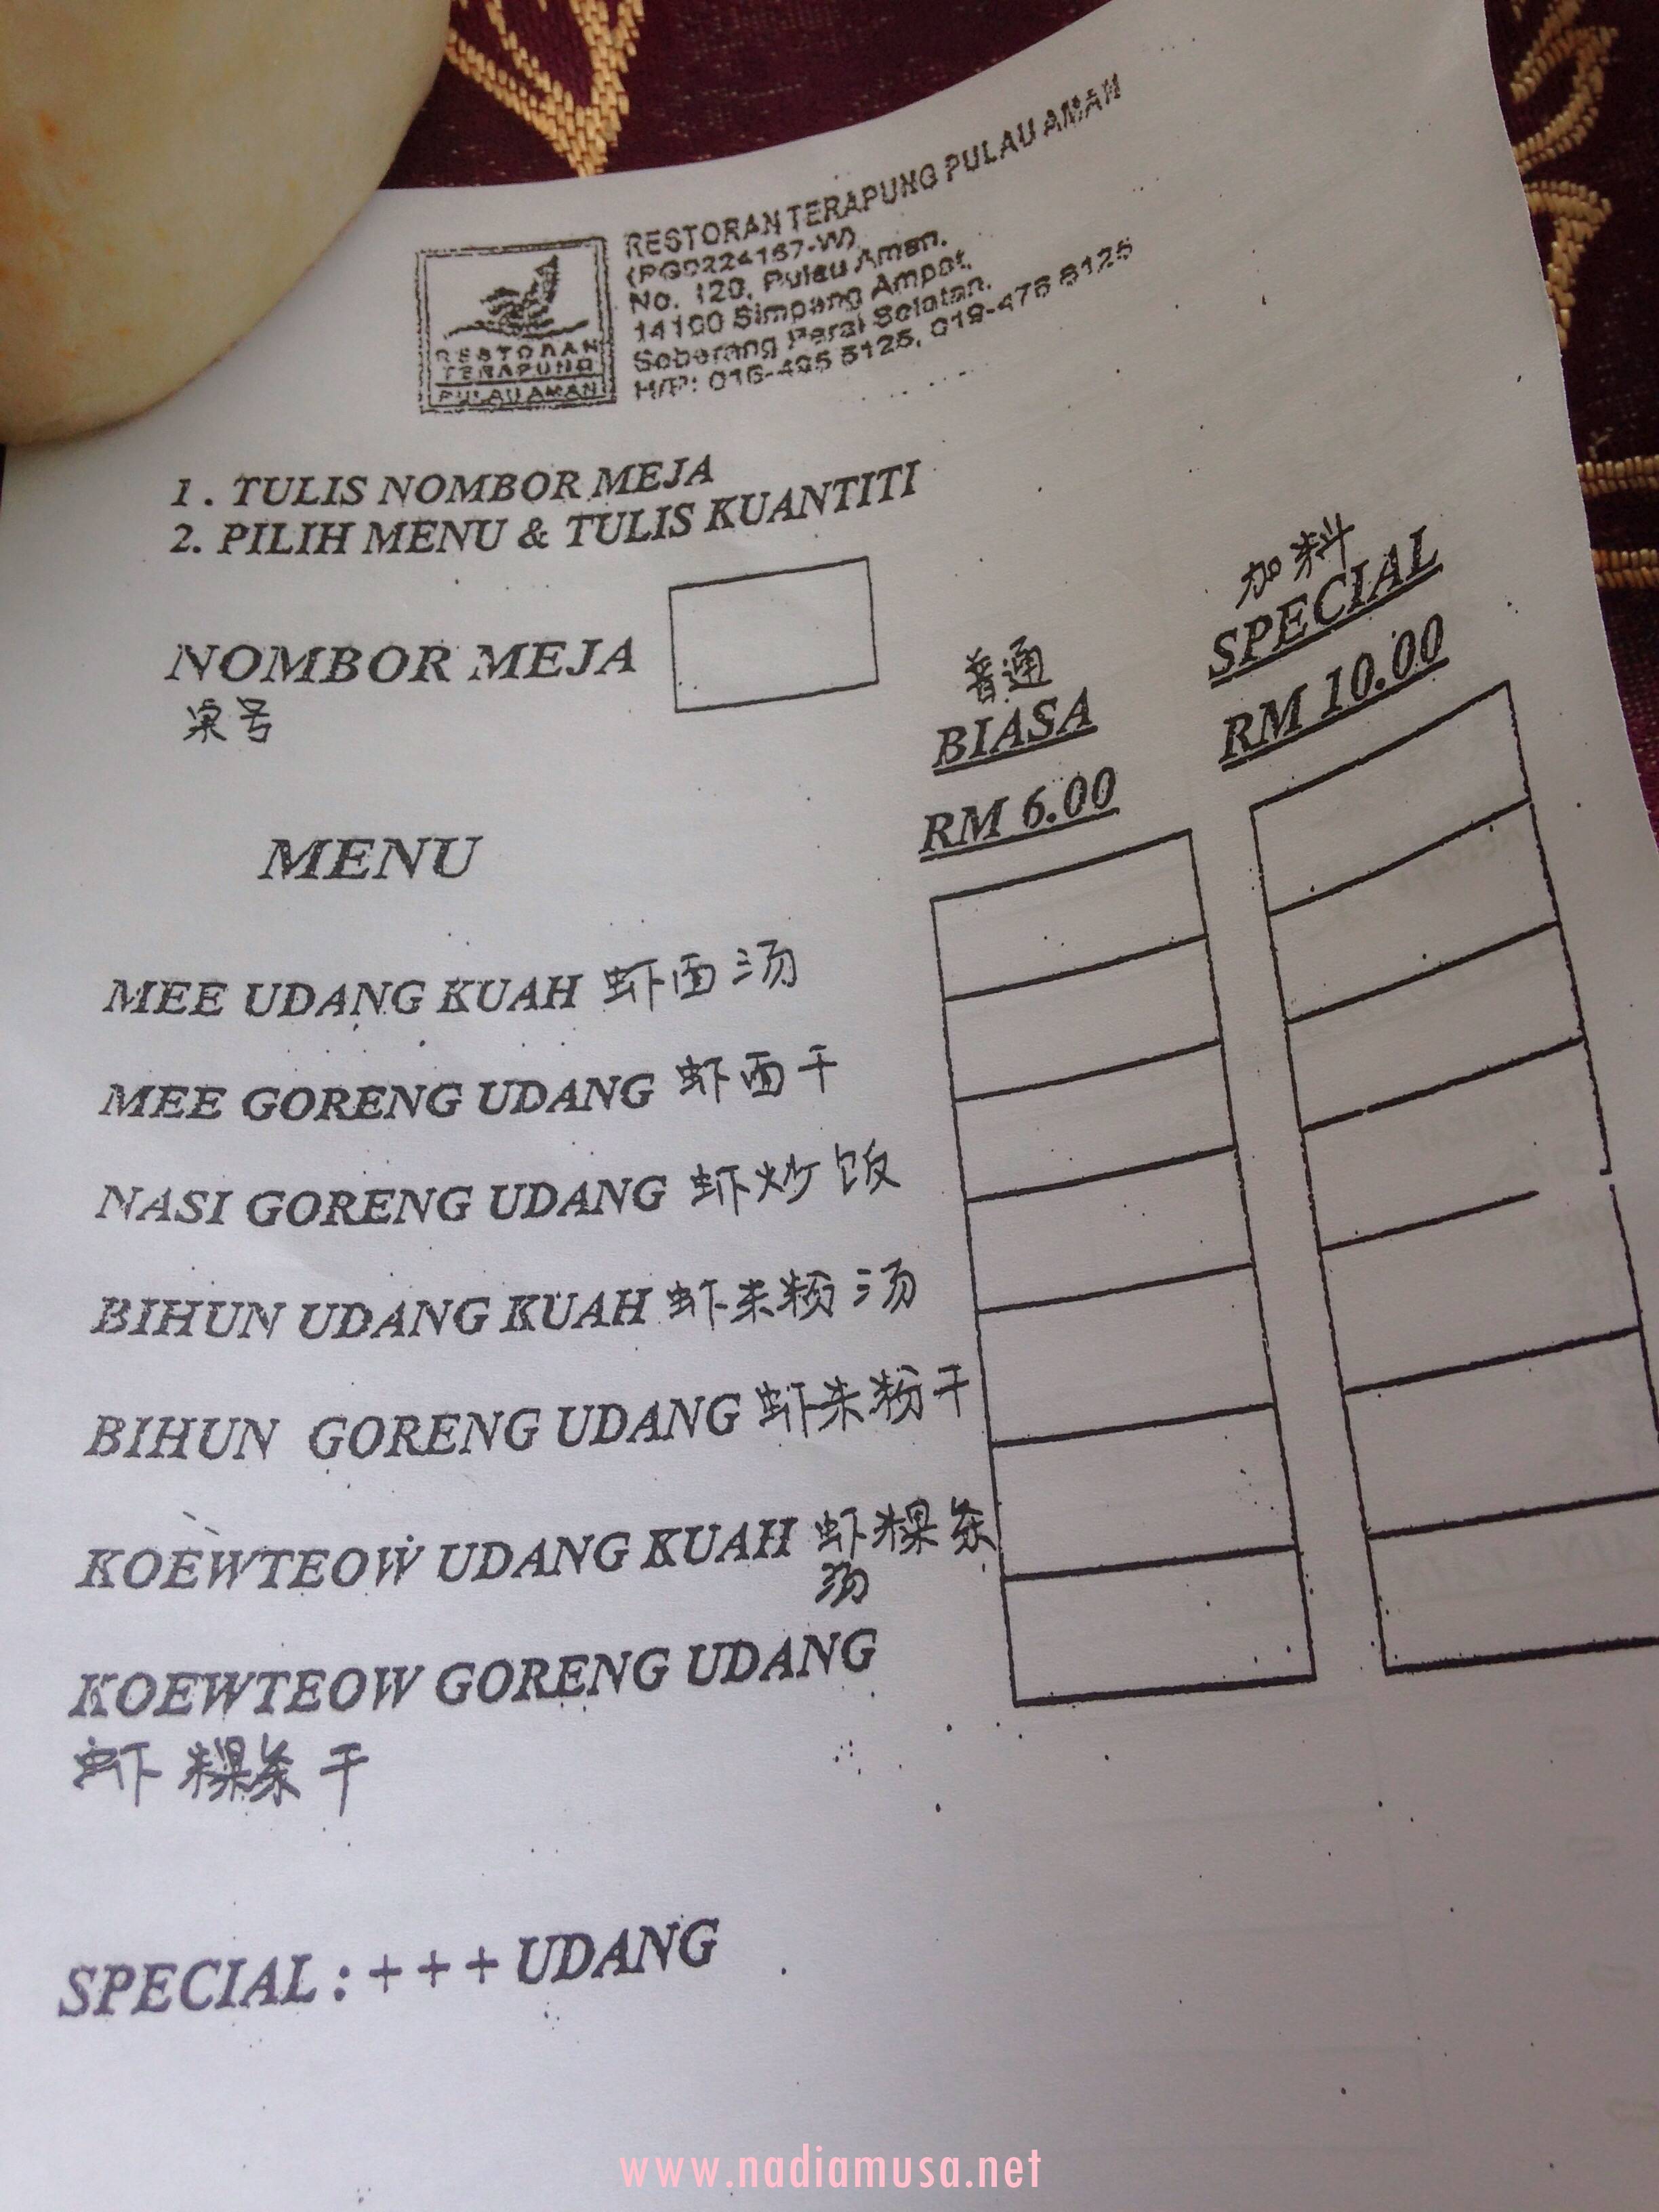 RESTORAN TERAPUNG PULAU AMAN
(PG0224167-W)
No. 120, Pulau Aman,
14100 Simpang Ampat,
Seberang Perai Selatan.
H/P: 016-495 5125, 019-476 6125
RESTORAN
TERAPUNG
PULAU AMAN
1. TULIS NOMBOR MEJA
2. PILIH MENU & TULIS KUANTITI
NOMBOR MEJA
桌号
普通
BIASA
RM 6.00
加料
SPECIAL
RM 10.00
MENU
MEE UDANG KUAH 虾面汤
MEE GORENG UDANG 虾面干
NASI GORENG UDANG 虾炒饭
BIHUN UDANG KUAH 虾米粉汤
BIHUN GORENG UDANG 虾米粉干
KOEWTEOW UDANG KUAH 虾粿条
汤
KOEWTEOW GORENG UDANG
虾粿条干
SPECIAL : + + + UDANG
www.nadiamusa.net